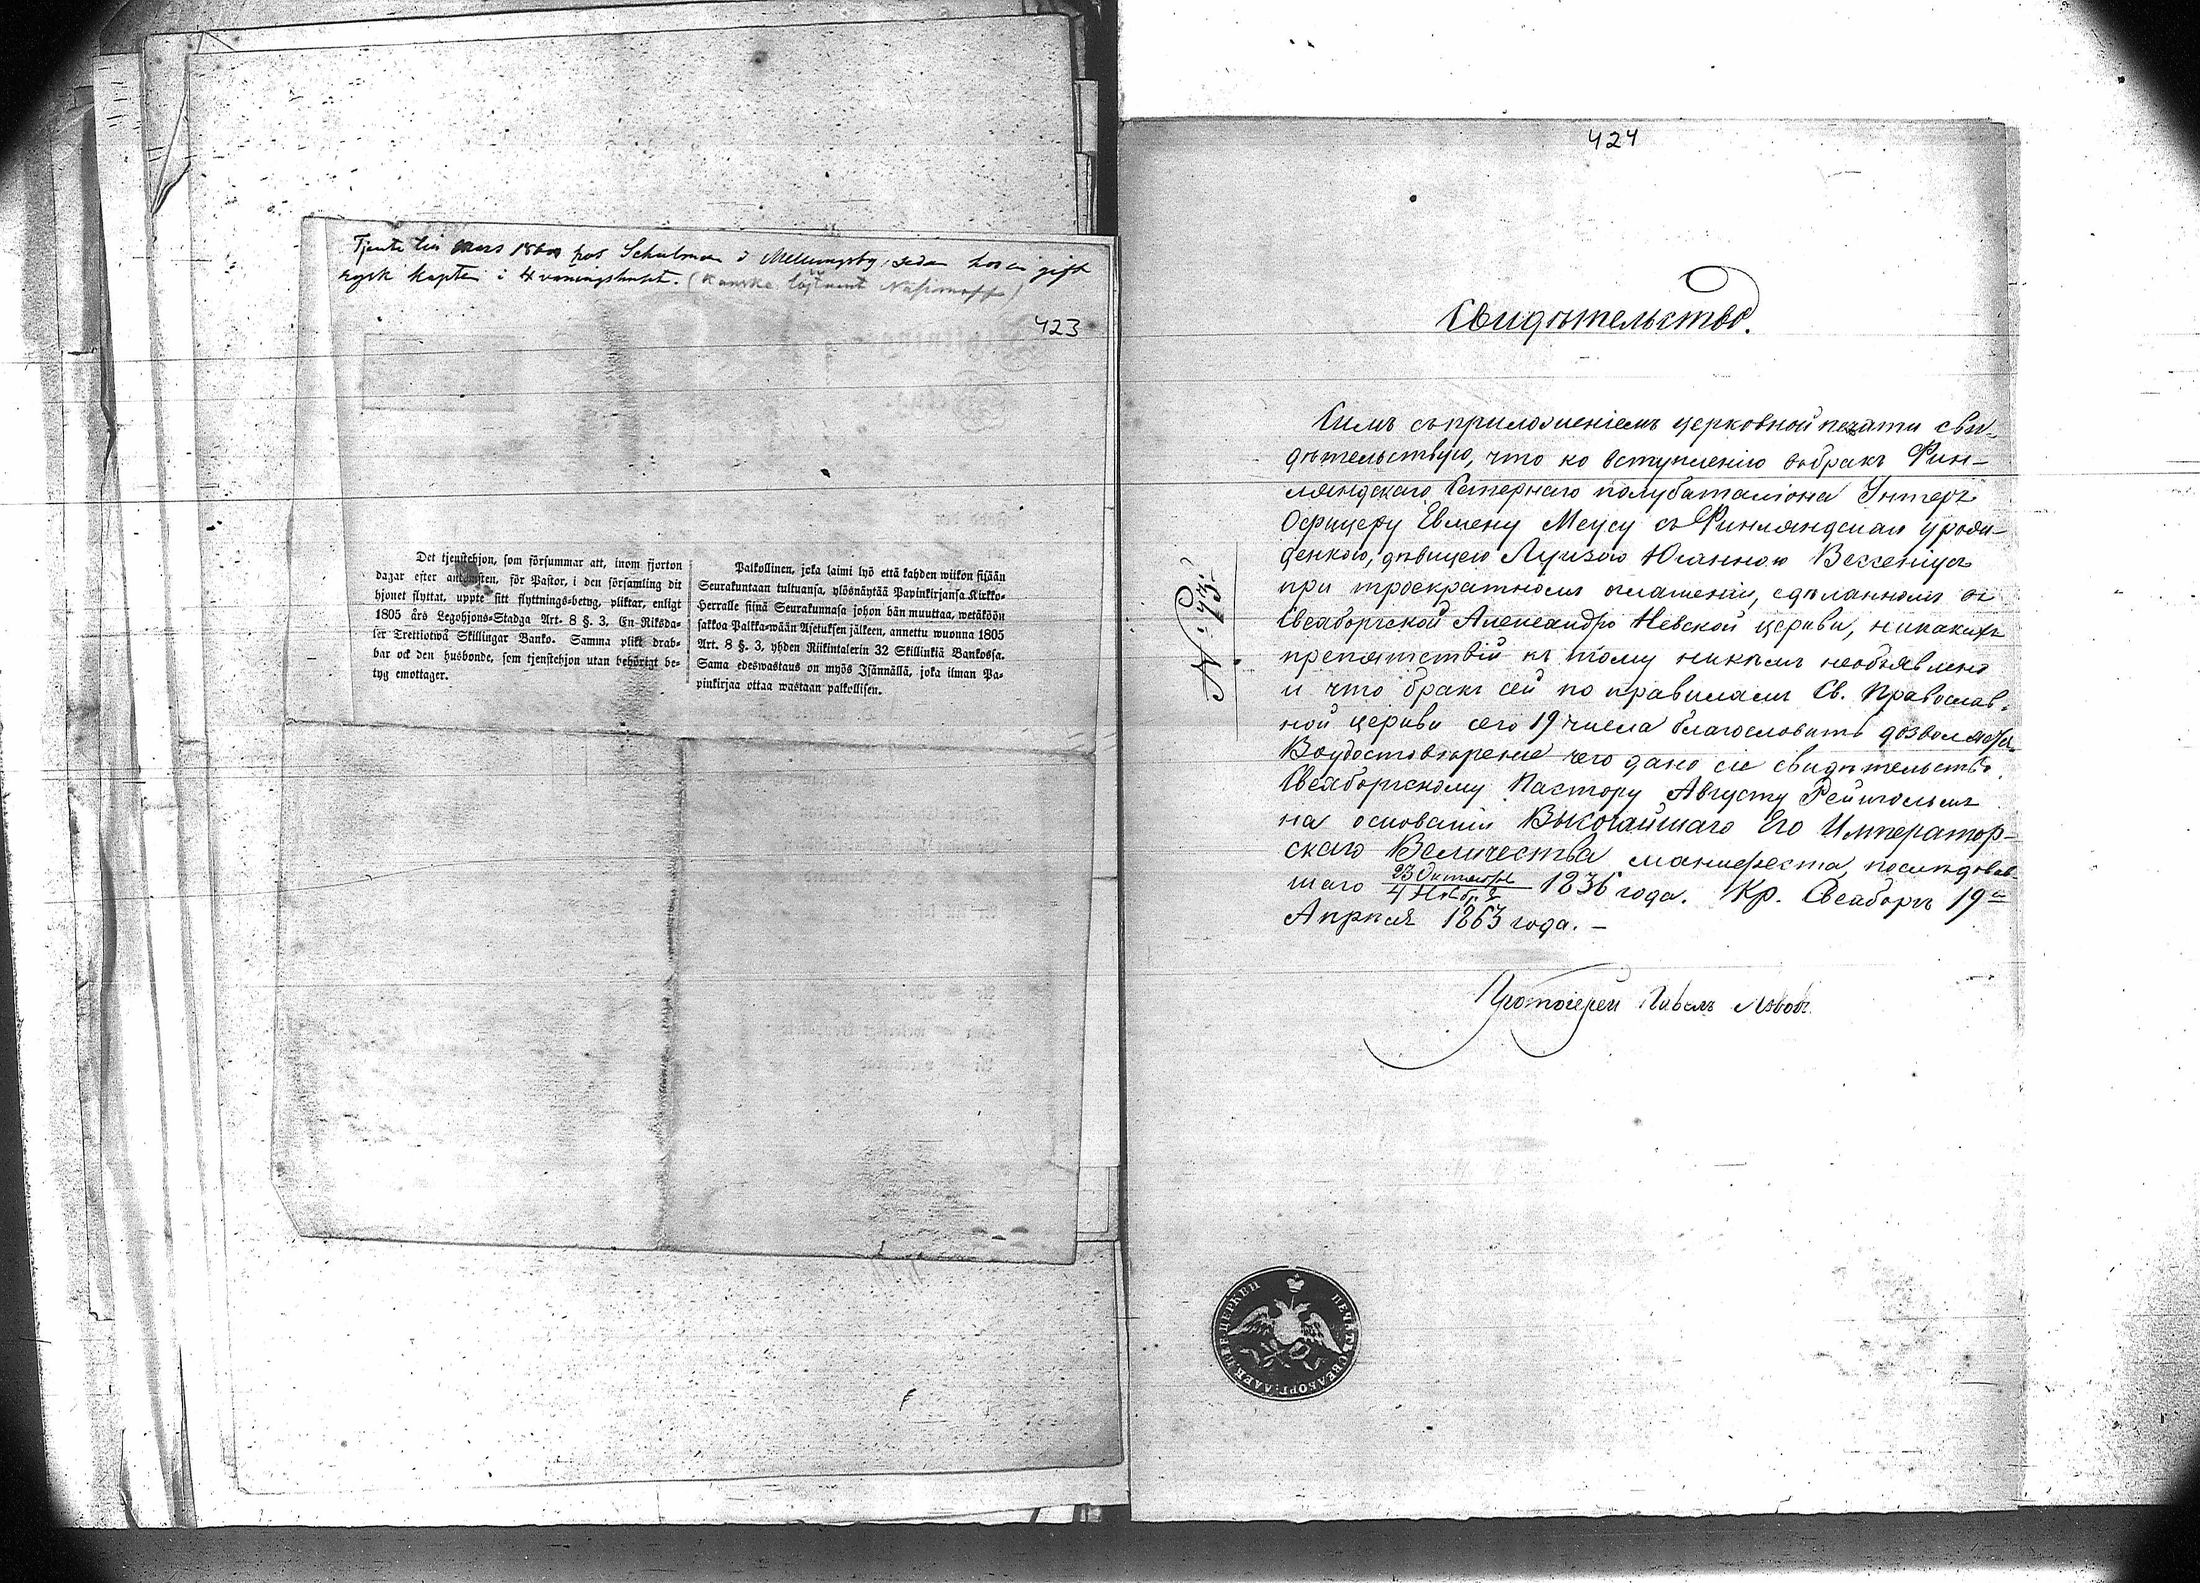 Tjente till mars 186 hos Schulman i Mellungsby, sedan hos en gift
rysk kapten i 4 vaningshuset. (Kanske löjtnant
423
Det tjenstehjon, som försummar att, inom fjorton
dagar efter ankomsten, för Pastor, i den församling dit
hjonet flyttat, uppte sitt flyttnings-betyg, pliktar, enligt
1805 års Legohjons-Stadga Art. 8 §. 3. En Riksda-
ler Trettiotwå Skillingar Banko. Samma plikt drab-
bar ock den husbonde, som tjenstehjon utan behörigt be-
tyg emottager.
Palkollinen, joka laimi lyö että kahden wiikon sisään
Seurakuntaan tultuansa, ylösnäytää Papinkirjansa Kirkko-
Herralle siinä Seurakunnasa johon hän muuttaa, wetäköön
sakkoa Palkka-wään Asetuksen jälkeen, annettu wuonna 1805
Art. 8 §. 3, yhden Riikintalerin 32 Skillinkiä Bankossa.
Sama edeswastaus on myös Isännällä, joka ilman Pa-
pinkirjaa ottaa wastaan palkollisen.
424
Свидѣтельство.
Симъ съ приложеніемъ церковной печати сви-
дѣтельствую, что ко вступленію въ бракъ Фин-
ляндскаго Катернаго полубаталіона Унтеръ
Офицеру Евмену Меусу съ Финляндскою урожи-
денкою, дѣвицею Луизою Юганною Вессеніусъ
при троекратномъ оглашеніи, сдѣланномъ въ
Свеаборгской Александро Невской церкви, никакихъ
препятствій къ тому никѣмъ необъявлено
и что бракъ сей по правиламъ Св. Православ-
ной церкви сего 19 числа благословить дозволяется.
Въ удостовѣреніе чего дано сіе свидѣтельство
Свеаборгскому Пастору Августу Рейгольмъ
на основаніи Высочайшаго Его Император-
скаго Величества манифеста, послѣдовав-
шаго 23 Октября / 4 Нояб. 1836 года. Кр. Свеаборгъ 19го
Апрѣля 1863 года. —
№ 43.
Протоіерей Павелъ Львовъ.
ПЕЧАТЬ СВЕАБОРГ: АЛЕК: НЕВ: ЦЕРКВИ